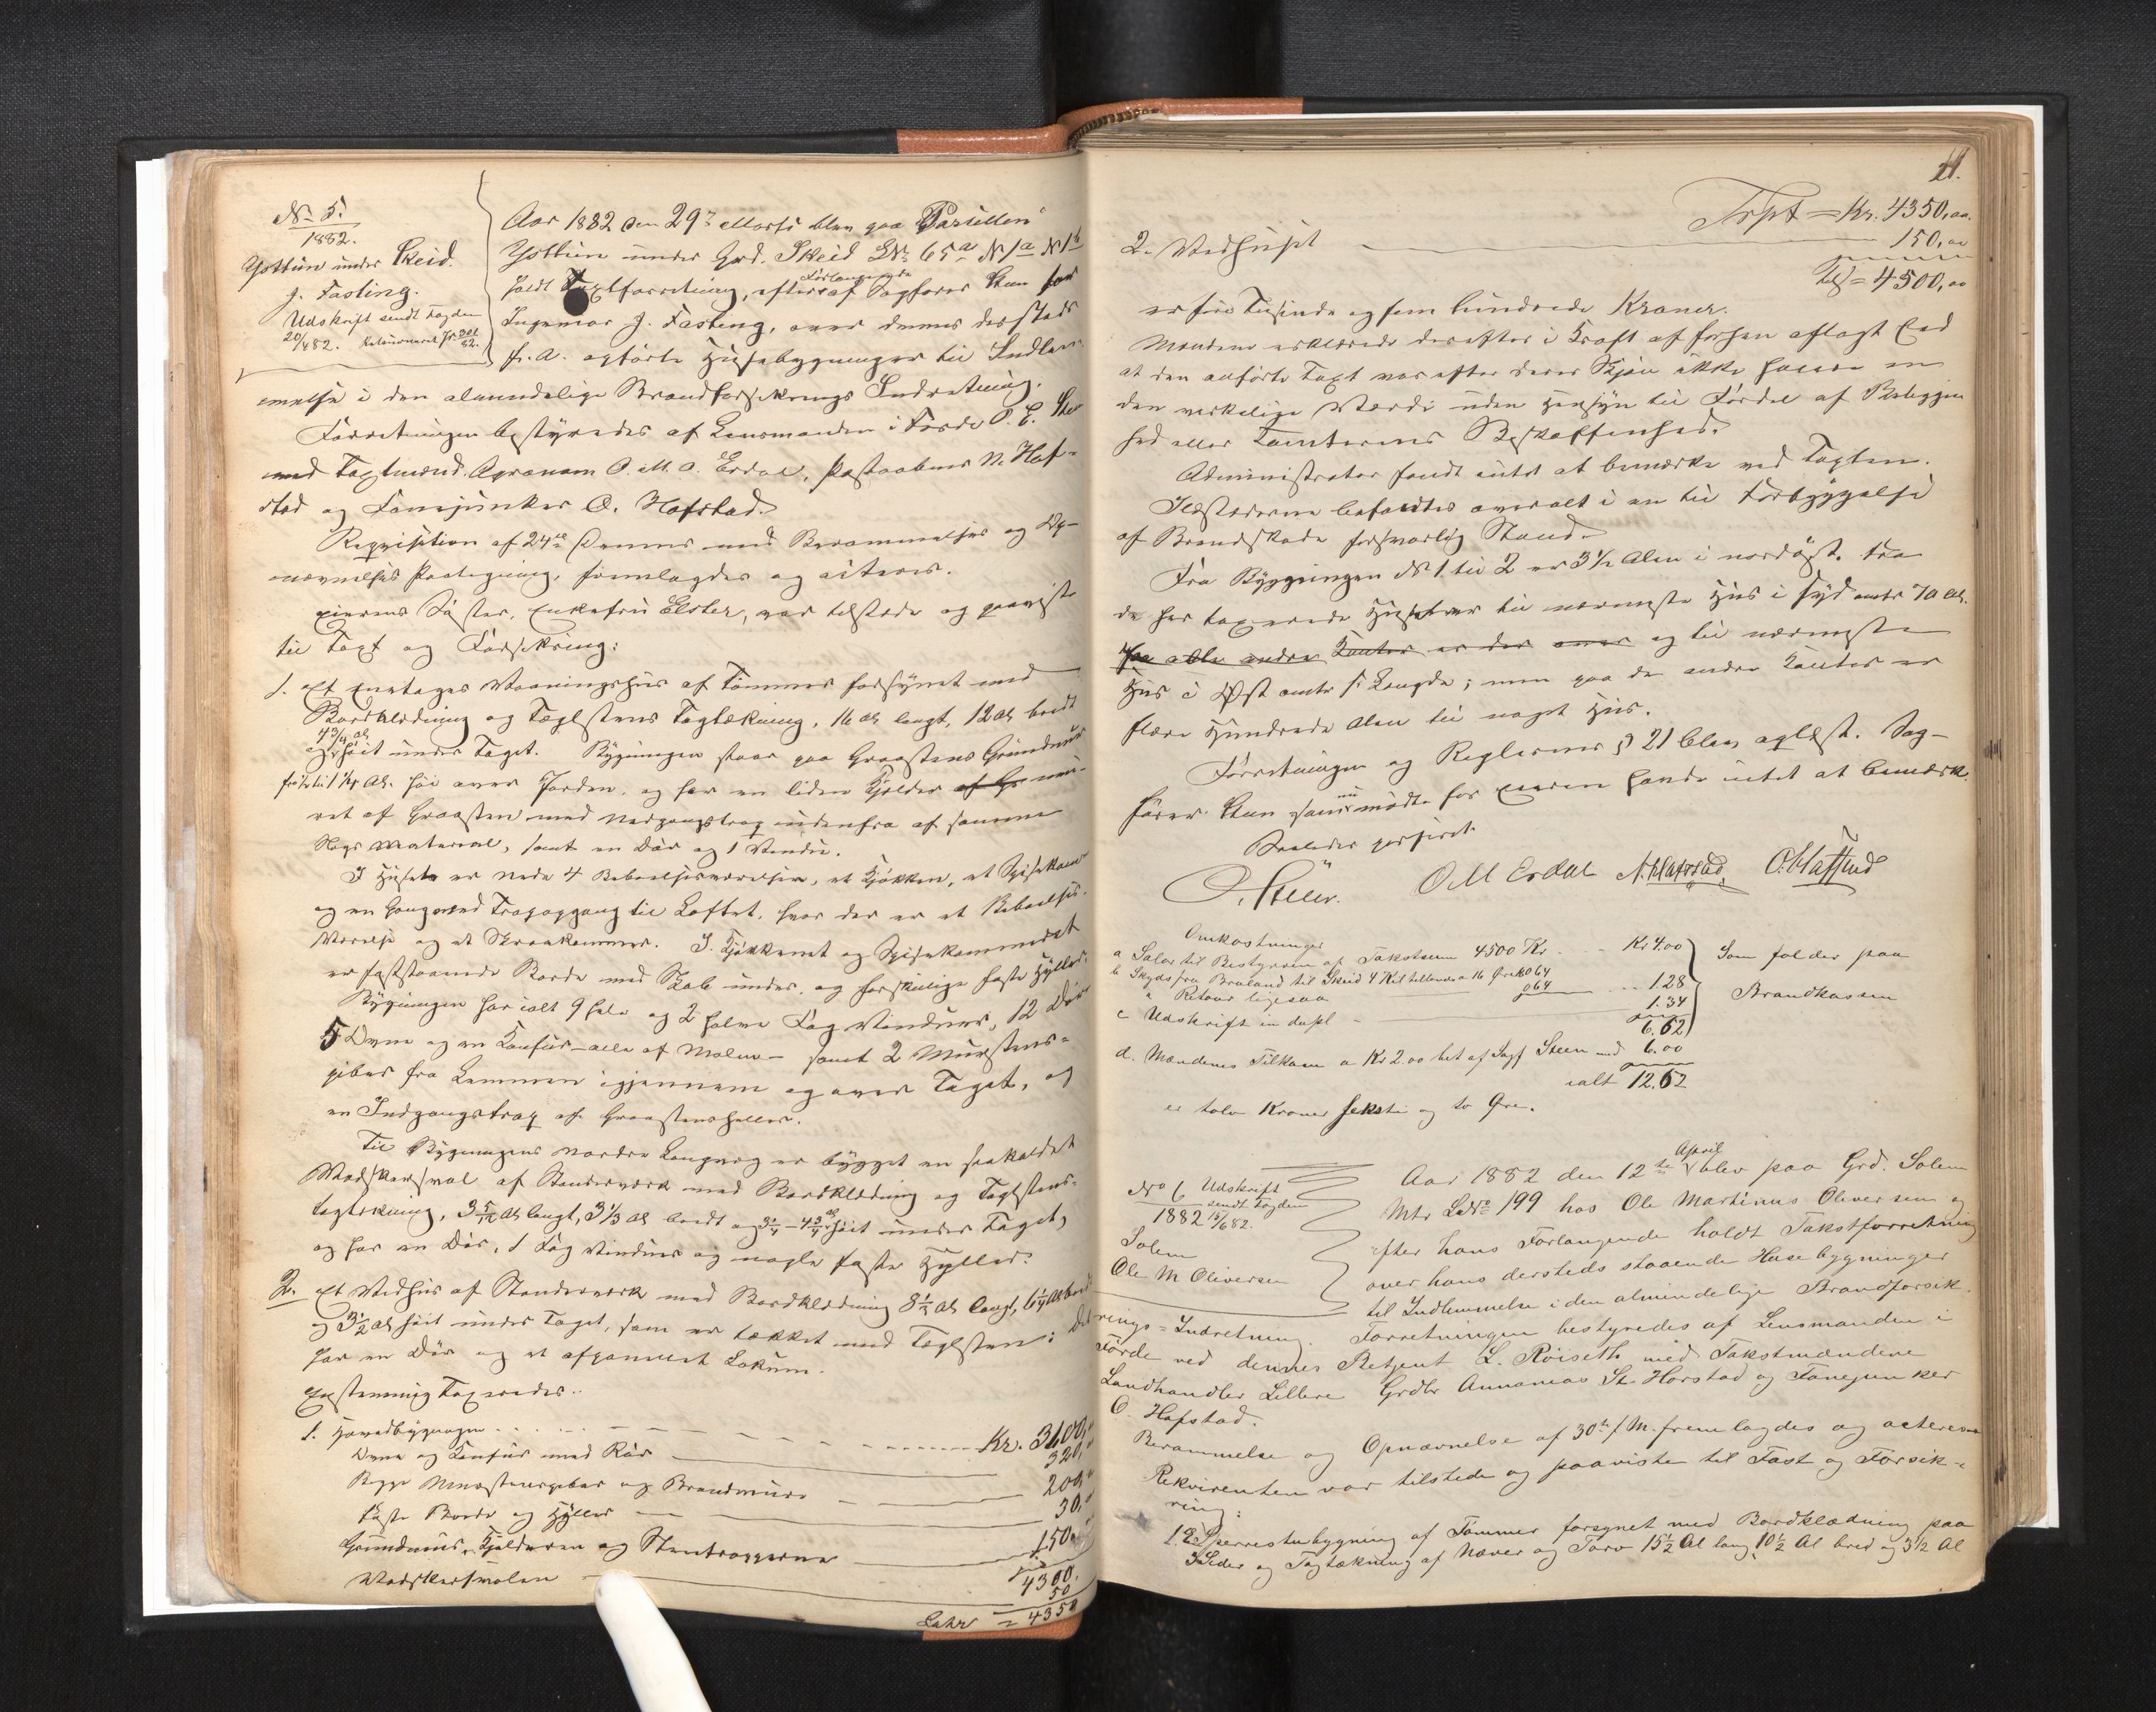 No 5.
1882.
Ysttun under Skeid.
J. Fasting.
Udskrift sendt Fogden
20/4 82. Returneret
Aar 1882 den 29de Marts blev paa Parsellen
Ysttun under Grd. Skeid LNr 65a N 1a N 1b
holdt Taxtforretning, efter Forlangende af Sagfører Steen for
Ingeniør J. Fasting, over dennes dersteds
fr. A. opførte Husebygninger til Indlem-
melse i den almindelige Brandforsikrings Indretning.
Forretningen bestyredes af Lensmanden i Førde
med Taxtmænd Agronom O. M. O. Erdal, Postaabner N. Haf-
stad og Fanejunker O. Hafstad.
Reqvisition af 24de Dennes med Berammelses og Op-
nævnelses Paategning, fremlagdes og acteres.
Eierens Søster, Enkefru Elster, var tilstede og paaviste
til Taxt og Forsikring:
1. Et Etages Vaaningshus af Tømmer forsynet med
Bordklædning og Teglstens Tagtækning, 16 Al langt, 12 Al bredt
og 4 3/4 Al høit under Taget. Bygningen staar paa Graastens Grundmur
høi over Jorden, og har en liden Kjelder af mu-
ret af Graasten med Nedgangstrap indenfra af samme
Slags Material, samt en Dør og 1 Vindu.
I Huset er nede 4 Beboelsesværelser, et Kjøkken, et Spisekam
og en Gang med Trapopgang til Loftet, hvor der er et Beboelses-
Værelse og et Skraakammer. I Kjøkkenet og Spisekammeret
er faststaaende Borde med Skab under, og forskjellige faste Hylder.
Bygningen har ialt 9 hele og 2 halve Fag Vinduer, 12 Døre
5 Ovne og en Komfur – alle af Malm – samt 2 Murstens-
piber fra Lemmen igjennem og over Taget, og
en Indgangstrap af Graastensheller.
Til Bygningens nordre Langvæg er bygget en saakaldet
Vadskersval af Stenderværk med Bordklædning og Teglstens-
tagtækning, Al langt, 3 1/3 Al bredt og 3 1/4 – 4 3/4 Al høit under Taget,
og har en Dør, 1 Fag Vinduer og nogle faste Hylder.
2. Et Vedhus af Stenderværk med Bordklædning 8 1/2 Al langt, 6 1/4 Al bred
og 3 1/2 Al høit under Taget, som er tækket med Teglsten: Det
har en Dør og et afpanelet Lokum.
Enstemmig Taxeredes..
1. Hovedbygningen Kr. 3600,
Ovne og Komfur med Rør 320,
Begge Murstenspiber og Brandmure 200,
Faste Borde og Hylder 30,
Grundmur, Kjelderen og Stentrapperne 150
4300,
Vadskersvalen 50
Latus = 4350
21.
Trspt = Kr. 4350,00.
2. Vedhuset 150,00
Tils = 4500,00
er fire Tusinde og fem hundrede Kroner.
Mændene erklærede derefter i Kraft af forhen aflagt Eed
at den anførte Taxt var efter deres Skjøn ikke høiere en
den virkelige Værdi uden Hensyn til Fordel af Beliggen
hed eller Tomternes Beskaffenhed.
Administrator fandt intet at bemærke ved Taxten.
Ildstederne befandtes overalt i en til Forbyggelse
af Brandskade forsvarlig Stand.
Fra Bygningen N 1 til 2 er 3 1/2 Alen i nordøst. Fra
de her taxerede Husebyer til nærmeste Hus i Syd omtr 70 Al.
Paa alle andre Kanter er der over og til nærmeste
Hus i Øst omtr s: Længde; men paa de andre Kanter er
flere Hundrede Alen til noget Hus.
Forretningen og Reglernes § 21 blev oplæst. Sag-
fører Steen som nu mødte for Eieren havde intet at bemærke.
Saaledes passeret.
O. M Erdal N. Hafstad O. Hafstad
Omkostninger
a Salær til Bestyreren af Takstsum 4500 Kr. Kr 4.00
b Skyds fra Bruland til Skeid 4 Kil tillands a 16 Øre 0 64
" Retour ligesaa 0 64 1.28
c Udskrift in dupl 1.34
6.62
Som falder paa
Brandkassen
d. Mændenes Tilkom a Kr 2.00 bet af Sagf Steen med 6.00
ialt 12.62
er tolv Kroner seksti og to Øre.
No 6 Udskrift
1882 sendt Fogden
15/6 82.
Solem
Ole M Oliversen
Aar 1882 den 12te April blev paa Grd. Solem
Mtr LNo 199 hos Ole Martinus Oliversen og
efter hans Forlangende holdt Takstforretning
over hans dersteds staaende Husebygninger
til Indlemmelse i den almindelige Brandforsik-
rings-Indretning. Forretningen bestyredes af Lensmanden i
Førde ved dennes Betjent L. Røiseth med Takstmændene
Landhandler Lillere Grdbr Annanias St. Horstad og Fanejunker
O. Hafstad.
Berammelse og Opnævnelse af 30te f M. fremlagdes og acteres
Rekvirenten var tilstede og paaviste til Taxt og Forsik-
ring:
1. E Sperrestubygning af Tømmer forsynet med Bordklædning paa
3 Sider og Tagtækning af Næver og Torv 15 1/2 Al lang 10 1/2 Al bred og 3 1/2 Al